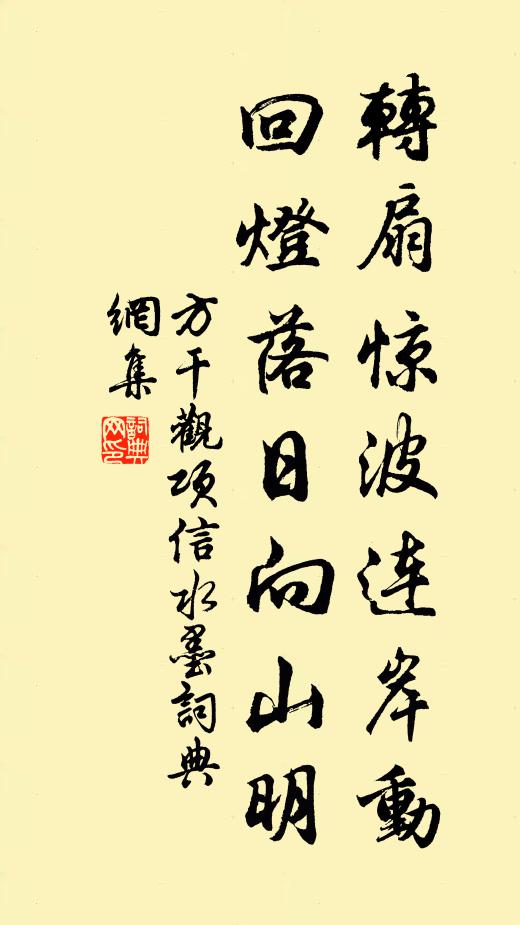 轉扇惊波連岸動
回燈落日向山明
方干觀項信水墨詞典
網集
詞典
网印